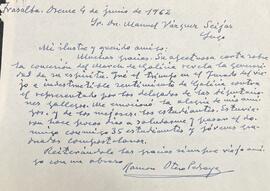 Trasalba. Orense 4 de junio de 1962
Sr. Dn. Manuel Vázquez Seijas
Lugo
Mi ilustre y querido amigo:
Muchas gracias. Su afectuosa carta sobre
la concesión del March de Galicia revela la generosi
dad de su espíritu. Fué el triunfo en el Jurado del viejo
e indestructible sentimiento de Galicia entera
el representado por los delegados de las diputacio
nes gallegas. Me emocionó la alegría de mis ami
gos, y de los mejores, los estudiantes. Estuvie
ron hace pocos días a saludarme y pasar el do
mingo conmigo 35 estudiantes y jóvenes gra
duados compostelanos.
Reiterándole las gracias siempre viejo ami
go con un abrazo
Ramón Otero Pedrayo